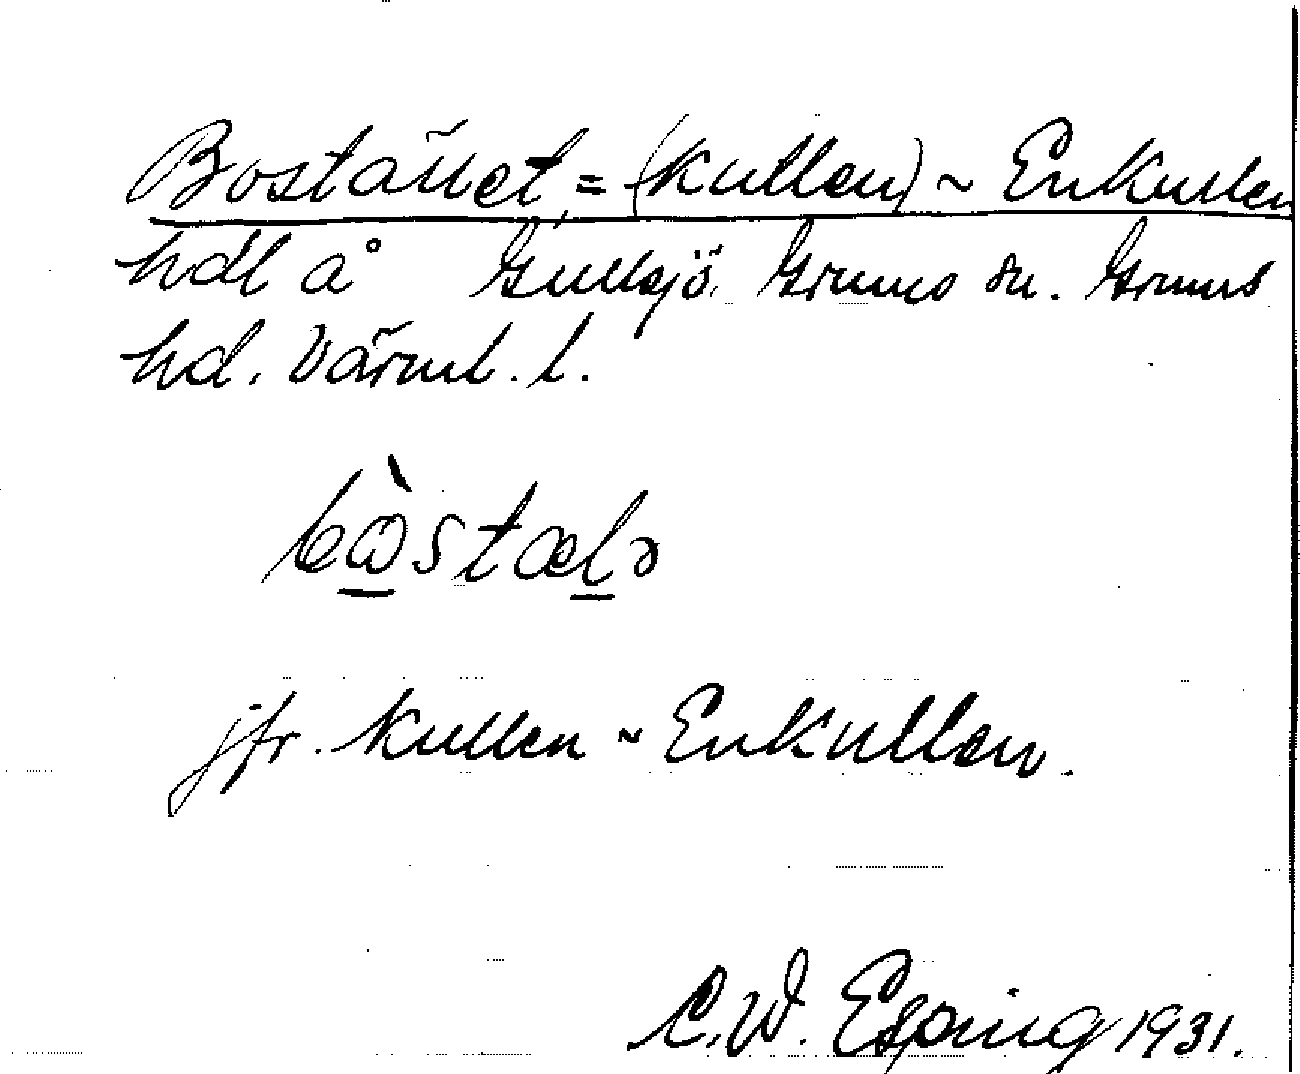 Bostället, = (Kullen) ~ Enkullen
hdl å Gullsjö, Grums sn. Grums
hd. Värml. l.
bòstælə
jfr. Kullen ~ Enkullen.
C.W. Esping 1931.